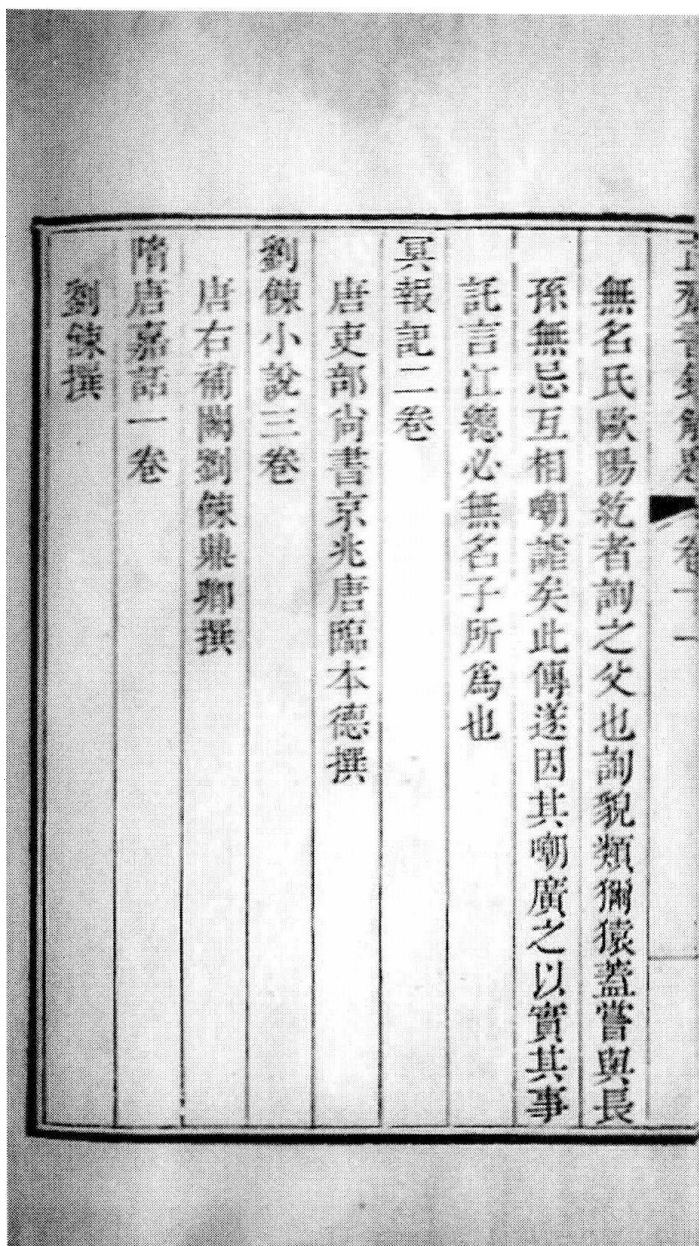 直齋書錄解題 卷十一
無名氏歐陽紇者詢之父也詢貌類獼猿蓋嘗與長
孫無忌互相嘲謔矣此傳遂因其嘲廣之以實其事
託言江總必無名子所爲也
冥報記二卷
唐吏部尚書京兆唐臨本德撰
劉餗小說三卷
唐右補闕劉餗鼎卿撰
隋唐嘉話一卷
劉餗撰